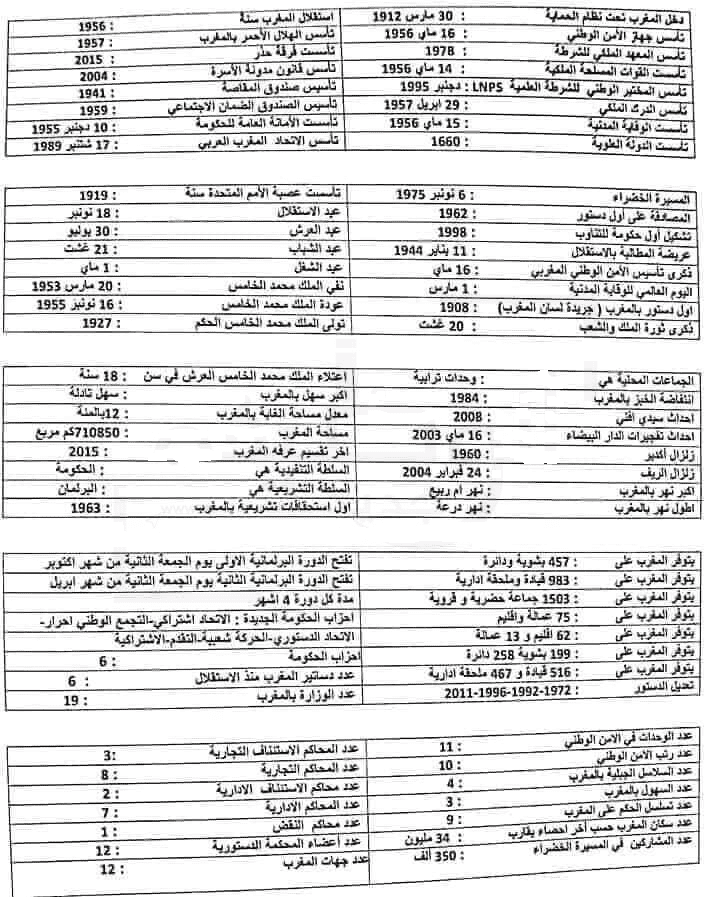 دخل المغرب تحت نظام الحماية : 30 مارس 1912
تأسس جهاز الأمن الوطني : 16 ماي 1956
تأسس المعهد الملكي للشرطة : 1978
تأسست القوات المسلحة الملكية : 14 ماي 1956
تأسس المختبر الوطني للشرطة العلمية LNPS : دجنبر 1995
تأسس الدرك الملكي : 29 ابريل 1957
تأسست الوقاية المدنية : 15 ماي 1956
تأسست الدولة العلوية : 1660
استقلال المغرب سنة : 1956
تأسس الهلال الأحمر بالمغرب : 1957
تأسست فرقة حذر : 2015
تأسس قانون مدونة الأسرة : 2004
تأسس صندوق المقاصة : 1941
تأسيس الصندوق الضمان الاجتماعي : 1959
تأسست الأمانة العامة للحكومة : 10 دجنبر 1955
تأسس الاتحاد المغرب العربي : 17 شتنبر 1989
المسيرة الخضراء : 6 نونبر 1975
المصادقة على أول دستور : 1962
تشكيل أول حكومة للتناوب : 1998
عريضة المطالبة بالاستقلال : 11 يناير 1944
ذكرى تأسيس الأمن الوطني المغربي : 16 ماي
اليوم العالمي للوقاية المدنية : 1 مارس
اول دستور بالمغرب ( جريدة لسان المغرب) : 1908
ذكرى ثورة الملك والشعب : 20 غشت
تأسست عصبة الأمم المتحدة سنة : 1919
عيد الاستقلال : 18 نونبر
عيد العرش : 30 يوليو
عيد الشباب : 21 غشت
عيد الشغل : 1 ماي
نفي الملك محمد الخامس : 20 مارس 1953
عودة الملك محمد الخامس : 16 نونبر 1955
تولى الملك محمد الخامس الحكم : 1927
الجماعات المحلية هي : وحدات ترابية
انتفاضة الخبز بالمغرب : 1984
احداث سيدي افني : 2008
احداث تفجيرات الدار البيضاء : 16 ماي 2003
زلزال أكدير : 1960
زلزال الريف : 24 فبراير 2004
اكبر نهر بالمغرب : نهر ام ربيع
اطول نهر بالمغرب : نهر درعة
اعتلاء الملك محمد الخامس العرش في سن : 18 سنة
اكبر سهل بالمغرب : سهل تادلة
معدل مساحة الغابة بالمغرب : 12بالمئة
مساحة المغرب : 710850كم مربع
اخر تقسيم عرفه المغرب : 2015
السلطة التنفيدية هي : الحكومة
السلطة التشريعية هي : البرلمان
اول استحقاقات تشريعية بالمغرب : 1963
يتوفر المغرب على : 457 بشوية ودائرة
يتوفر المغرب على : 983 قيادة وملحقة ادارية
يتوفر المغرب على : 1503 جماعة حضرية و قروية
يتوفر المغرب على : 75 عمالة واقليم
يتوفر المغرب على : 62 اقليم و 13 عمالة
يتوفر المغرب على : 199 بشوية 258 دائرة
يتوفر المغرب على : 516 قيادة و 467 ملحقة ادارية
تعديل الدستور : 1972-1992-1996-2011
تفتح الدورة البرلمانية الاولى يوم الجمعة الثانية من شهر اكتوبر
تفتح الدورة البرلمانية الثانية يوم الجمعة الثانية من شهر ابريل
مدة كل دورة 4 اشهر
احزاب الحكومة الجديدة : الاتحاد اشتراكي-التجمع الوطني احرار-
الاتحاد الدستوري-الحركة شعبية-التقدم-الاشتراكية
احزاب الحكومة : 6
عدد دساتير المغرب منذ الاستقلال : 6
عدد الوزارة بالمغرب : 19
عدد الوحدات في الامن الوطني : 11
عدد رتب الامن الوطني : 10
عدد السلاسل الجبلية بالمغرب : 4
عدد السهول بالمغرب : 3
عدد تسلسل الحكم على المغرب : 9
عدد سكان المغرب حسب أخر احصاء يقارب : 34 مليون
عدد المشاركين في المسيرة الخضراء : 350 ألف
عدد المحاكم الاستئناف التجارية :3
عدد المحاكم التجارية : 8
عدد محاكم الاستئناف الادارية : 2
عدد المحاكم الادارية : 7
عدد محاكم النقض : 1
عدد أعضاء المحكمة الدستورية : 12
عدد جهات المغرب : 12